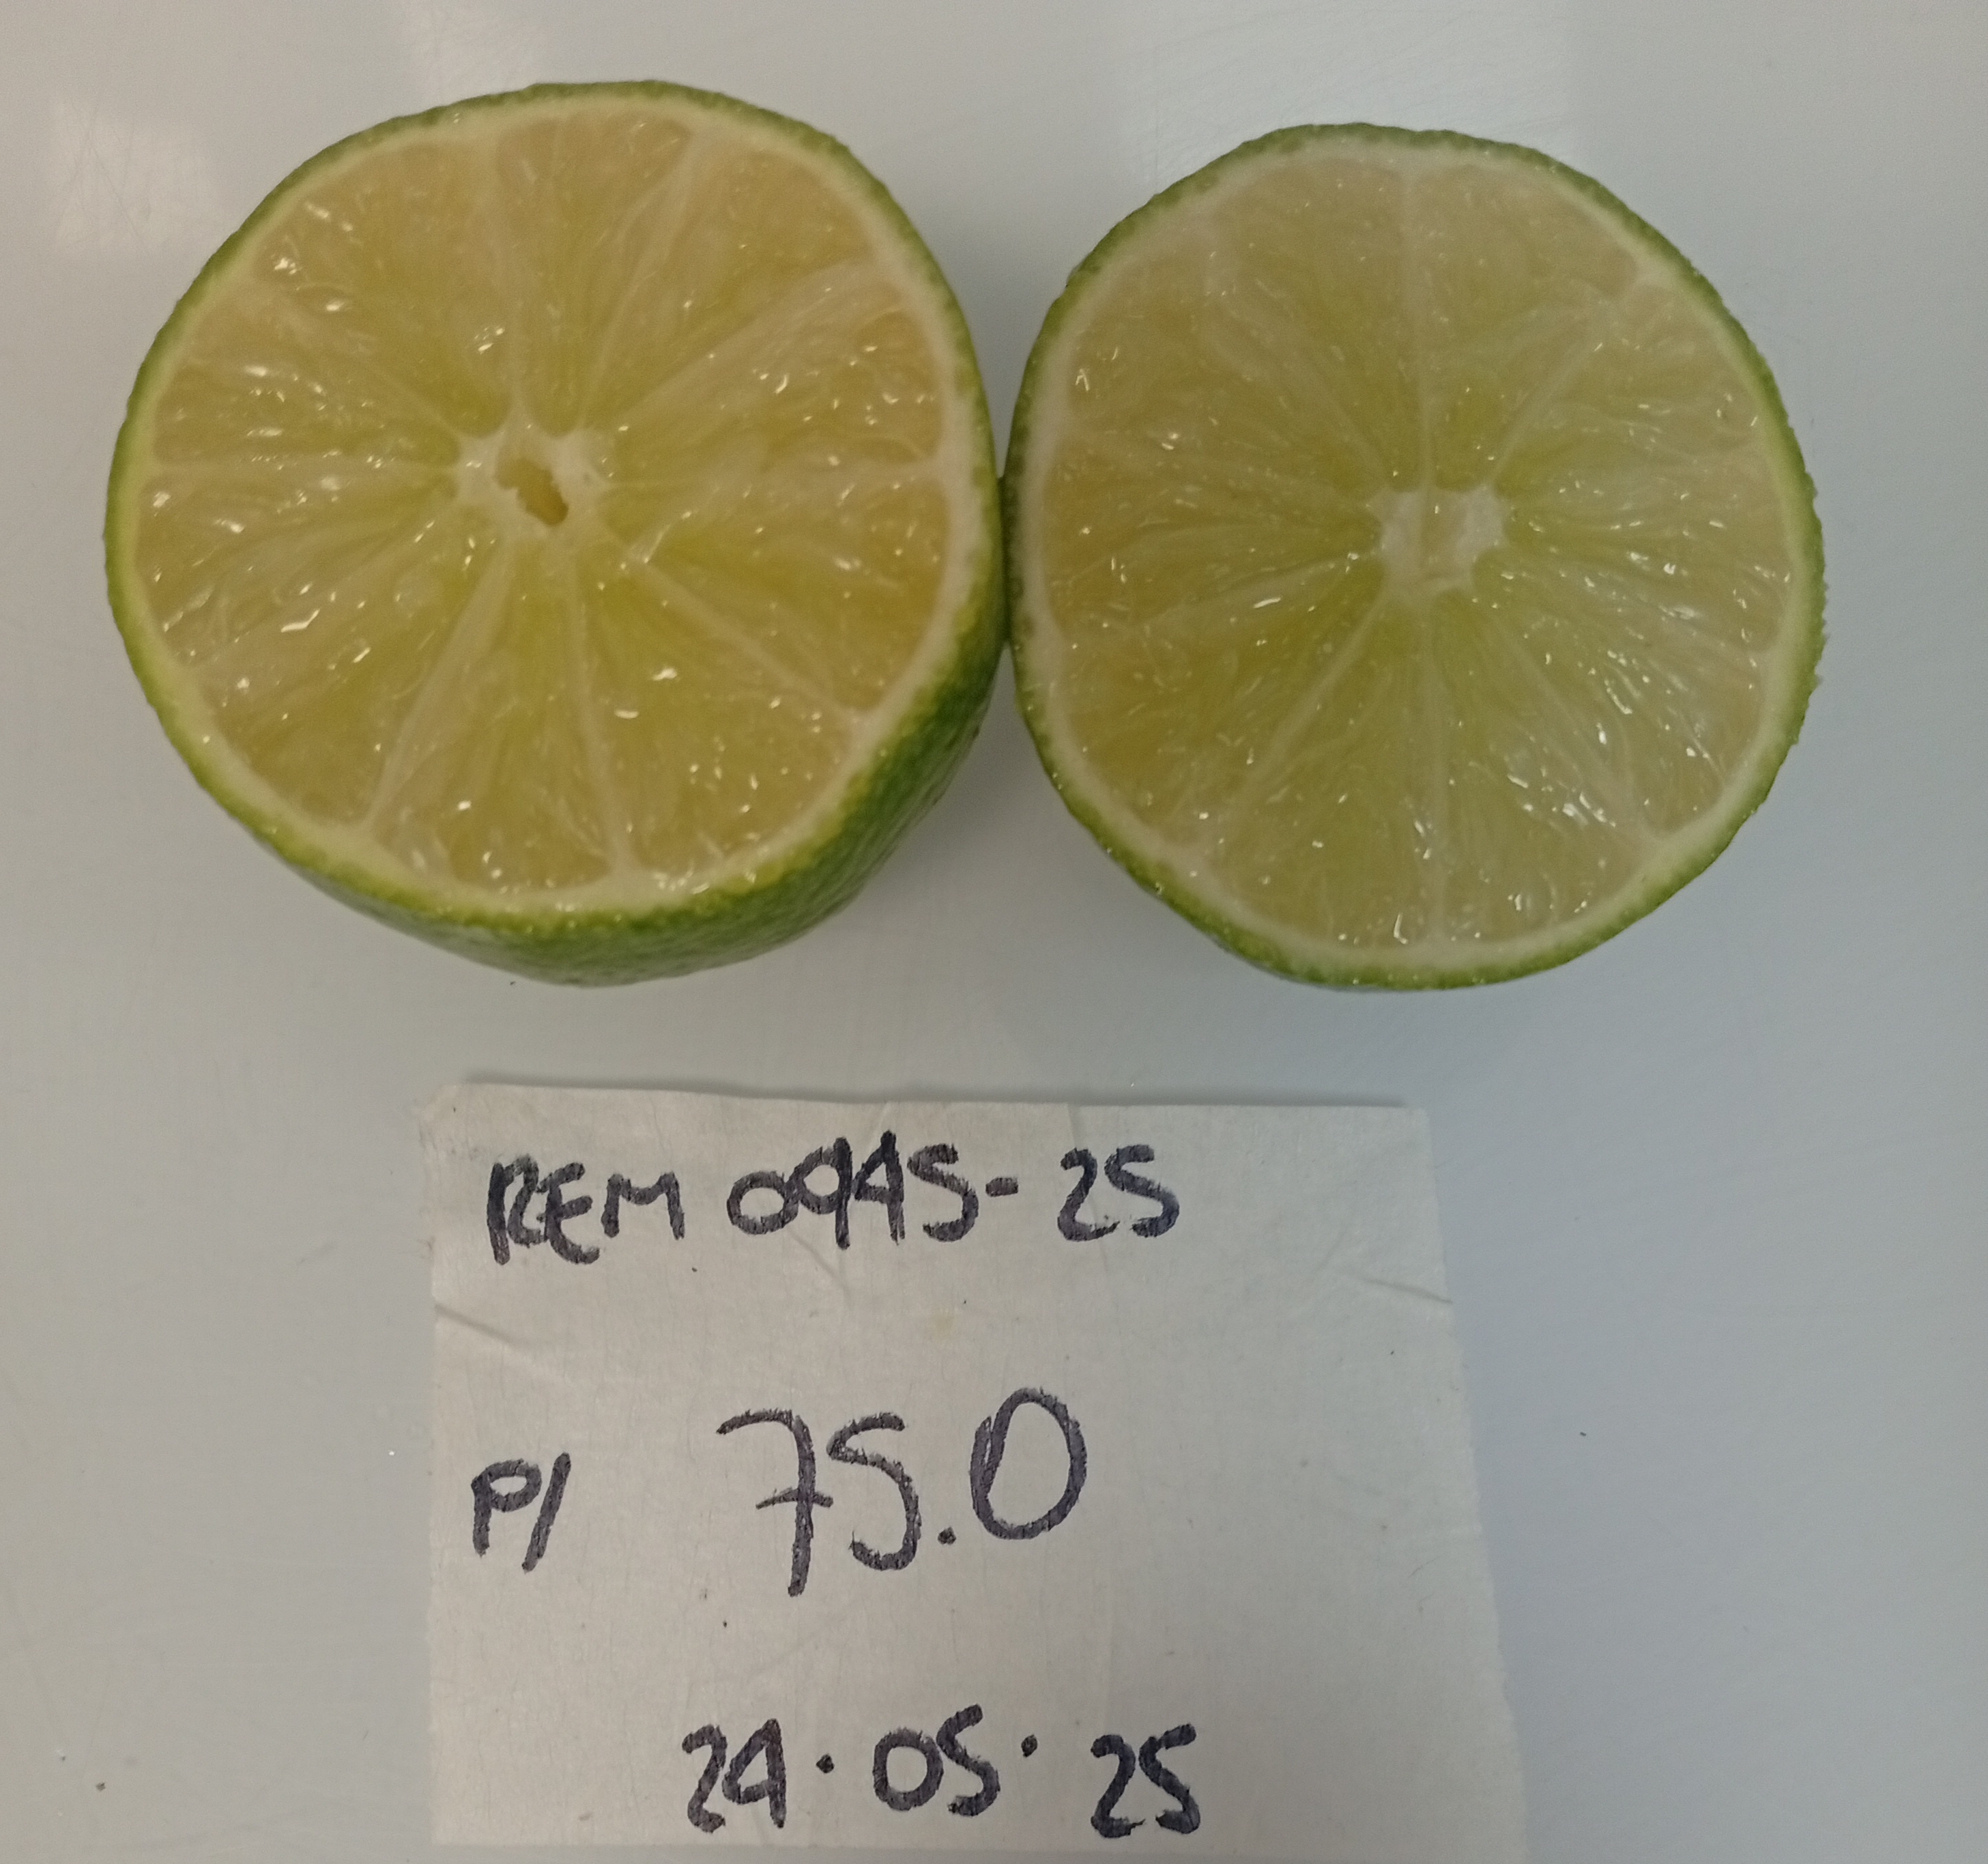 REM 0945-25
P/ 75.0
24.05.25